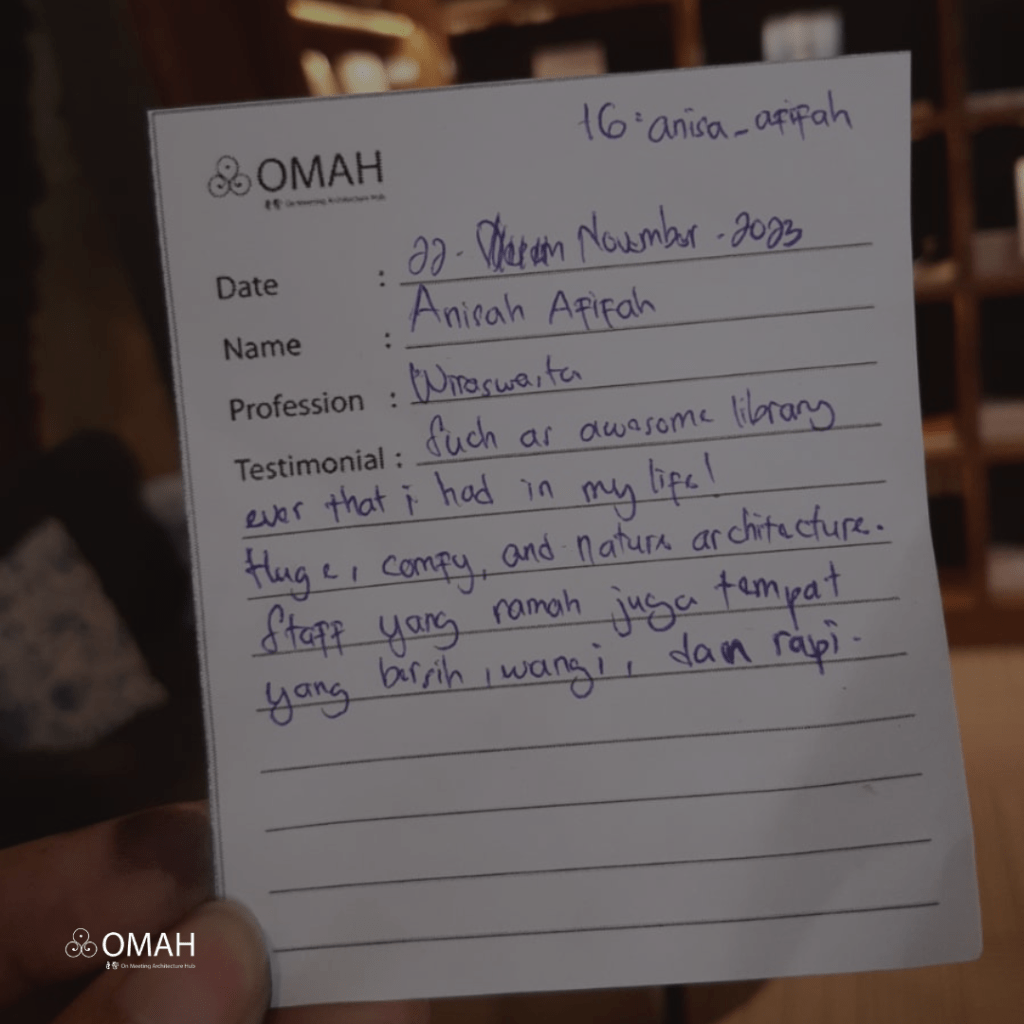 16: anisa_afifah
OMAH
On Meeting Architecture Hub
Date : 22 - November - 2023
Name : Anisah Afifah
Profession : Wiraswasta
Testimonial : Such as awesome library
ever that i had in my life!
Huge, comfy, and nature architecture.
Staff yang ramah juga tempat
yang bersih, wangi, dan rapi.
OMAH
On Meeting Architecture Hub